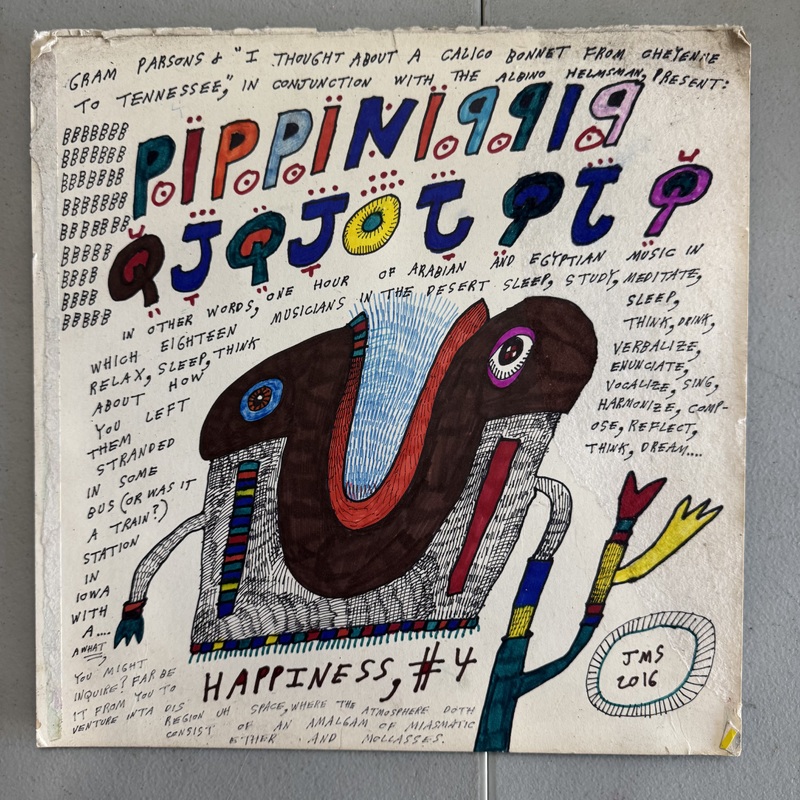 GRAM PARSONS & "I THOUGHT ABOUT A CALICO BONNET FROM CHEYENNE
TO TENNESSEE," IN CONJUNCTION WITH THE ALBINO HELMSMAN, PRESENT:
BBBBBBB
BBBBBBB
BBBBBBB
BBBBBBB
BBBBBBB
BBBBB
BBBB
BBBB
BBBBB
PIPPINI9919
IN OTHER WORDS, ONE HOUR OF ARABIAN AND EGYPTIAN MUSIC IN
WHICH EIGHTEEN MUSICIANS IN THE DESERT SLEEP, STUDY, MEDITATE,
RELAX, SLEEP, THINK
ABOUT HOW
YOU LEFT
THEM
STRANDED
IN SOME
BUS (OR WAS IT
A TRAIN?)
STATION
IN
IOWA
WITH
A....
AWHAT,
YOU MIGHT
INQUIRE? FAR BE
IT FROM YOU TO
VENTURE INTA DIS REGION UH SPACE, WHERE THE ATMOSPHERE DOTH
CONSIST OF AN AMALGAM OF MIASMATIC
ETHER AND MOLLASSES.
SLEEP,
THINK, DRINK,
VERBALIZE,
ENUNCIATE,
VOCALIZE, SING,
HARMONIZE, COMP-
OSE, REFLECT,
THINK, DREAM....
HAPPINESS, #4
JMS
2016